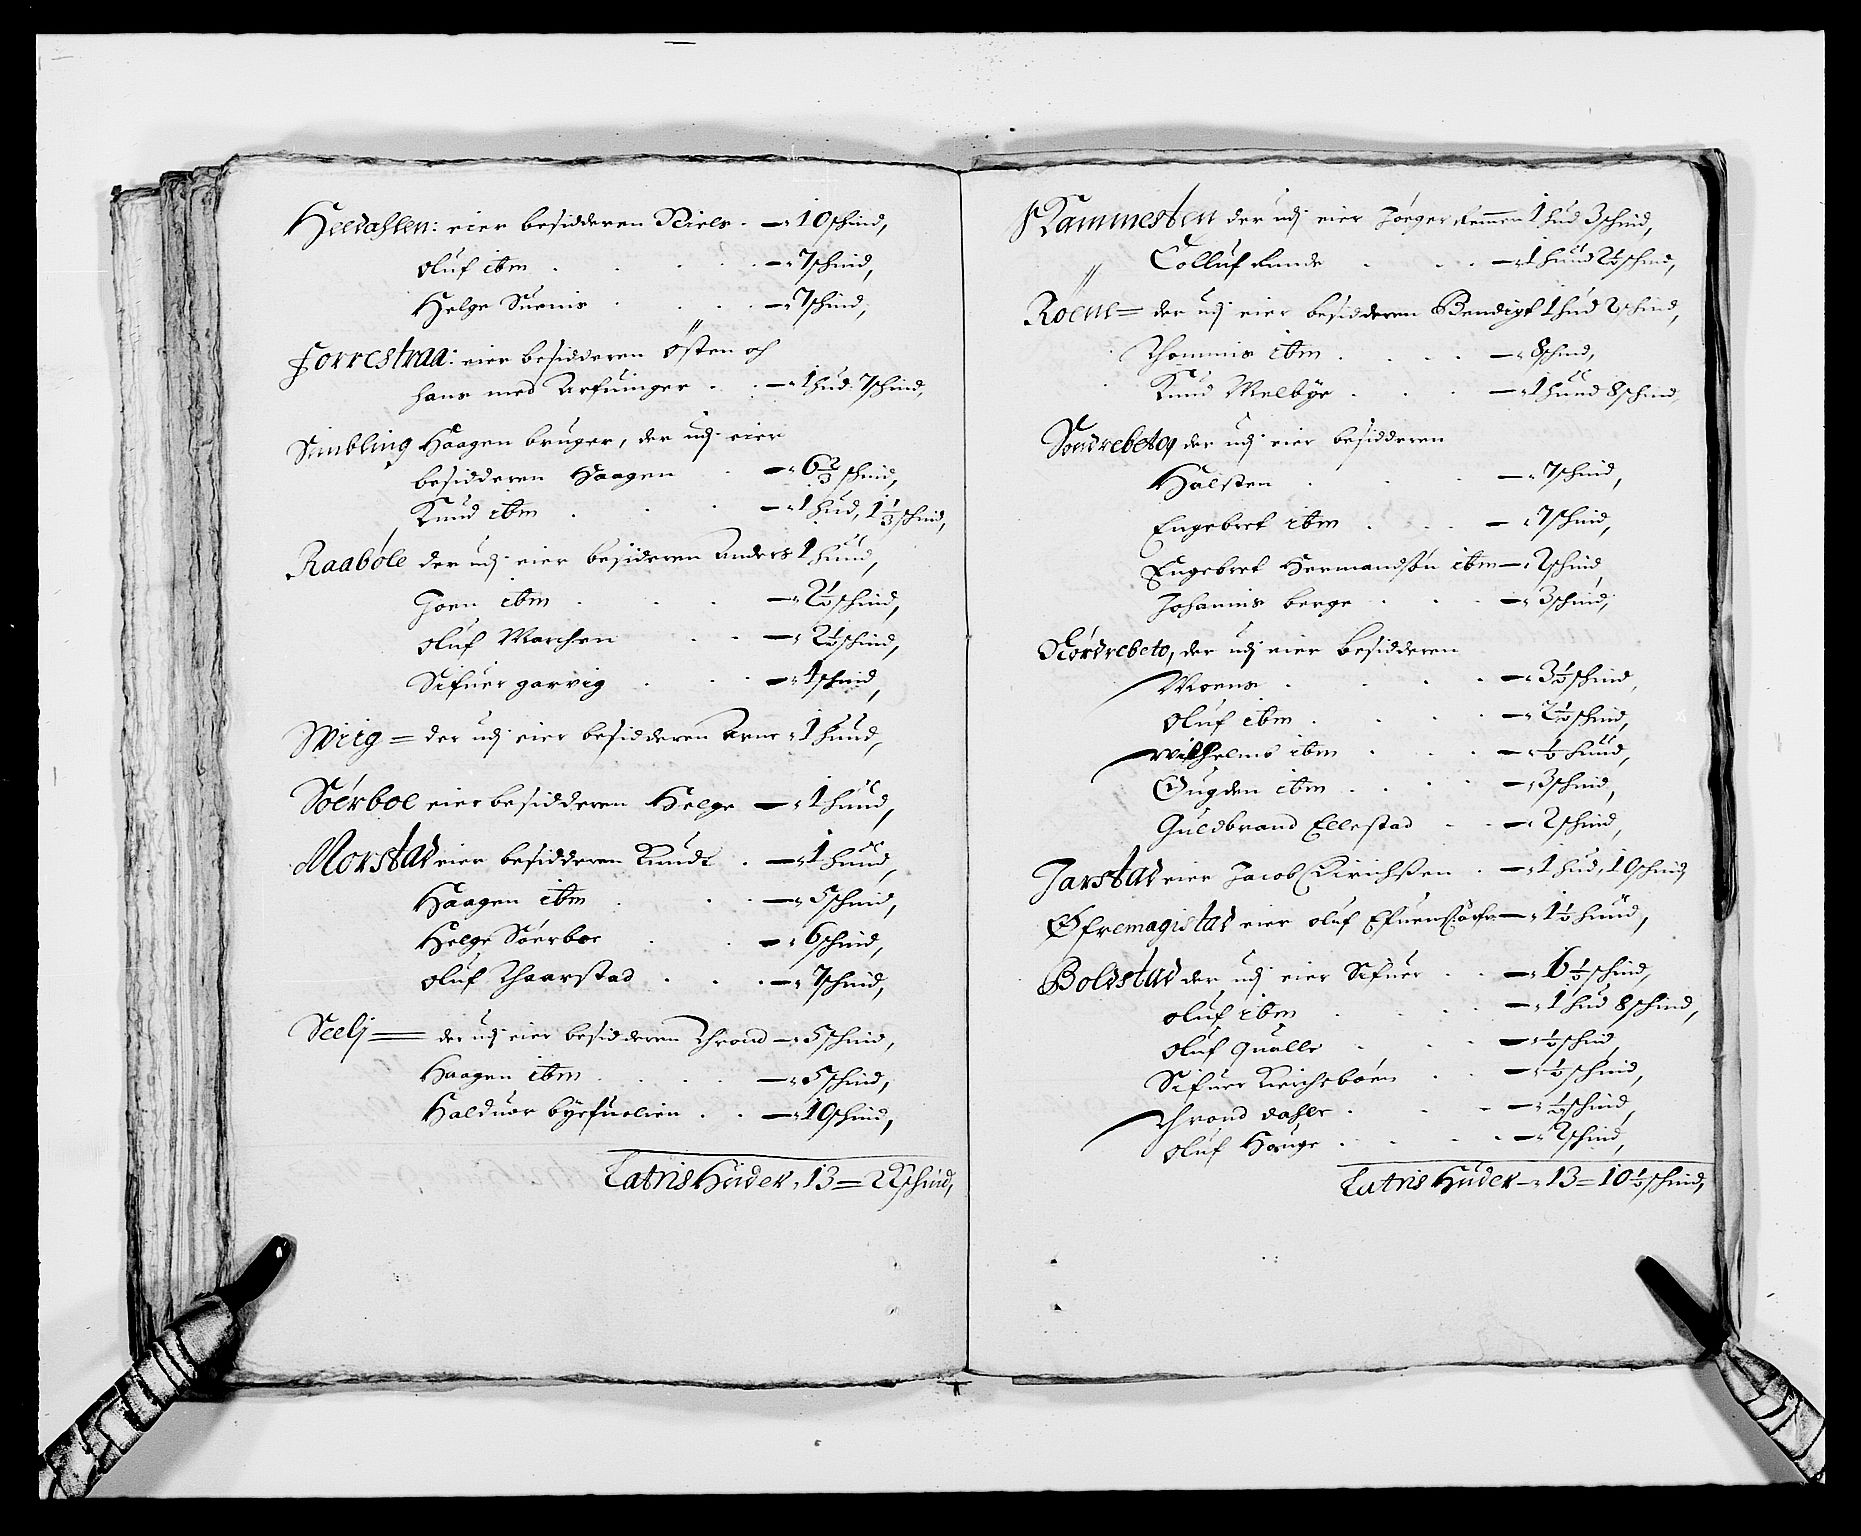 Heldahlen: eier besidderen Niels. — 10 schind,
oluf ibm . . . — 7 schind,
Helge Suenis . . . — 7 schind,
Forrestraa: eier besidderen östen och
hans med Arfuinger . . — 1 hud. 7 schind,
Simbling Haagen bruger, der udj eier
besidderen Haagen . — 6 2/3 schind,
Knud ibm . . . — 1 hud, 1 1/3 schind,
Raaböle der udj eier besideren Anders 1 huud,
Joen ibm . . . — 2 1/2 schind,
oluf Marchen . . — 2 1/2 schind,
Sifuer garvig . . — 1 schind,
Wiig = der udj eier besidderen Arne 1 huud,
Söerboe eier besidderen Helge — 1 huud,
Morstad eier besidderen Knudt . — 1 huud,
Haagen ibm . . . — 5 schind,
Helge Söerboe . . — 6 schind,
oluf Thaarstad . . . — 7 schind,
Seelj = der udj eier besidderen Thrond — 5 schind,
Haagen ibm . . . . — 5 schind,
Halduor byefuolien . . — 10 schind,
Latris Huder, 13 = 22 schind,
Kammesten der udj eier Jörger Remmen 1 hud 3 schind,
Tolluf Runde . . . — 1 huud 2 1/2 schind,
Röene = der udj eier besidderen Bendigt 1 hud 2 schind,
Thommis ibm . . . — 8 schind,
Knud Melbye . . . — 1 huud 8 schind,
Söndrebetoj der udj eier besidderen
Halsten . . . — 7 schind,
Engebret ibm . . . — 7 schind,
Engebret Hermandsön ibm — 2 schind,
Johannis berge . . . — 3 schind,
Nordrebeto, der udj eier besidderen
Moens . . . . — 3 1/2 schind,
oluf ibm . . . . — 2 1/2 schind,
Wilhelms ibm . . . — 1/2 huud,
Gugden ibm . . . . — 3 schind,
Guldbrand Ellestad . . — 2 schind,
Jarstad eier Jacob Dirichsen . — 1 hud, 10 schind,
Öfremagistad eier oluf — 1 1/2 huud,
Boldstad der udj eier Sifuer . . — 6 1/2 schind,
oluf ibm . . . — 1 hud 8 schind,
oluf Qualle . . . — 1/2 schind,
Sifuer Kircheböen . . — 1/2 schind,
Thrond dahle . . . — 1/2 schind,
oluf Houge . . . . — 2 schind,
Latris Huder — 13 = 10 1/2 schind,